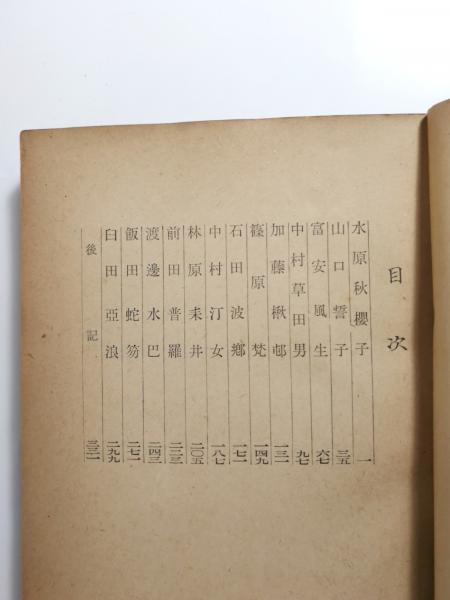 目次
水原秋櫻子 一
山口誓子 三五
富安風生 六七
中村草田男 九七
加藤楸邨 一三一
篠原梵 一四九
石田波鄕 一七一
中村汀女 一八七
林原耒井 二〇五
前田普羅 二二三
渡邊水巴 二四三
飯田蛇笏 二七一
臼田亞浪 二九九
後記 三三一